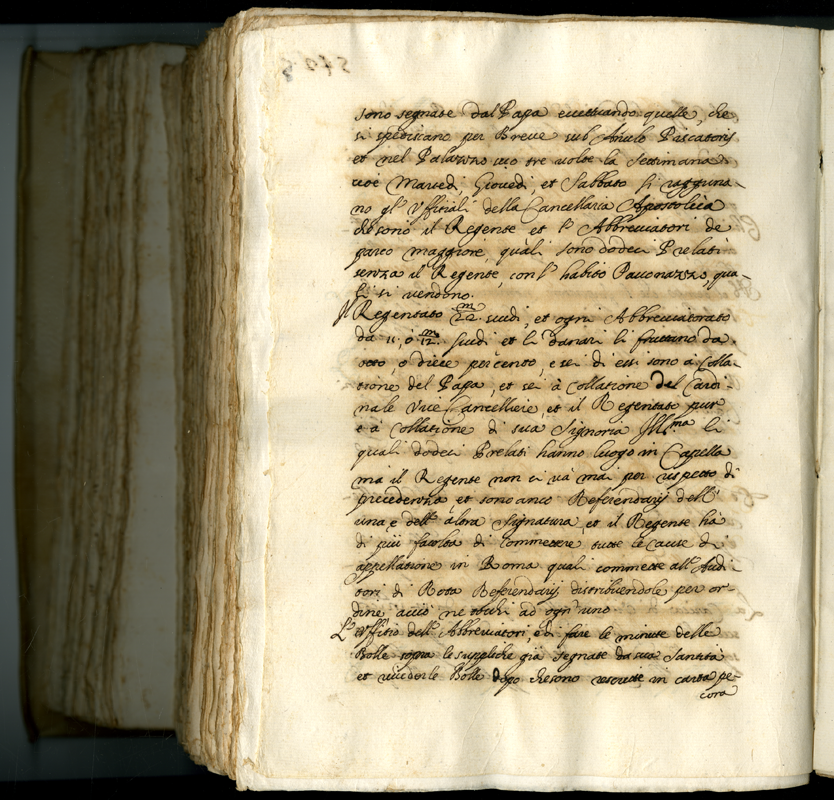 sono segnate dal Papa eccettuando quelle, che
si spediscano per Breve sub Anulo Piscatoris
et nel Palazzo suo tre volte la Settimana
cioè Martedi, Giovedi, et Sabbato si ragguna-
no gl' Uffitiali della Cancellaria Apostolica
che sono il Regente et l' Abbreviatori de
parco maggiore, quali sono dodeci Prelati
senza il Regente, con l' habito Pavonazzo, qua-
li si vendono.
Il Regentato 22 m scudi, et ogni Abbreviatorato
da 11, ò 12 m scudi et li danari li fruttano da
otto, o diece percento, e sei di essi sono à Colla-
tione del Papa, et sei à collatione del Cardi-
nale Vice Cancelliere, et il Regentato pur
è à Collatione di sua Signoria Ill.ma li
quali dodeci Prelati hanno luogo in Capella
mà il Regente non ci và mai per rispetto di
precedenza, et sono anco Referendarij dell'
una, e dell' altra Signatura, et il Regente hà
di più facoltà di Commettere tutte le Cause di
appellatione in Roma quali commette all' Audi-
tori di Rota Referendarij distribuendole per or-
dine acciò ne tochi ad ogn' uno
L' Uffitio dell' Abbreviatori, è di fare le minute delle
Bolle sopra le suppliche già segnate da sua Santità
et veder le Bolle dopo che sono scritte in carta pe-
cora